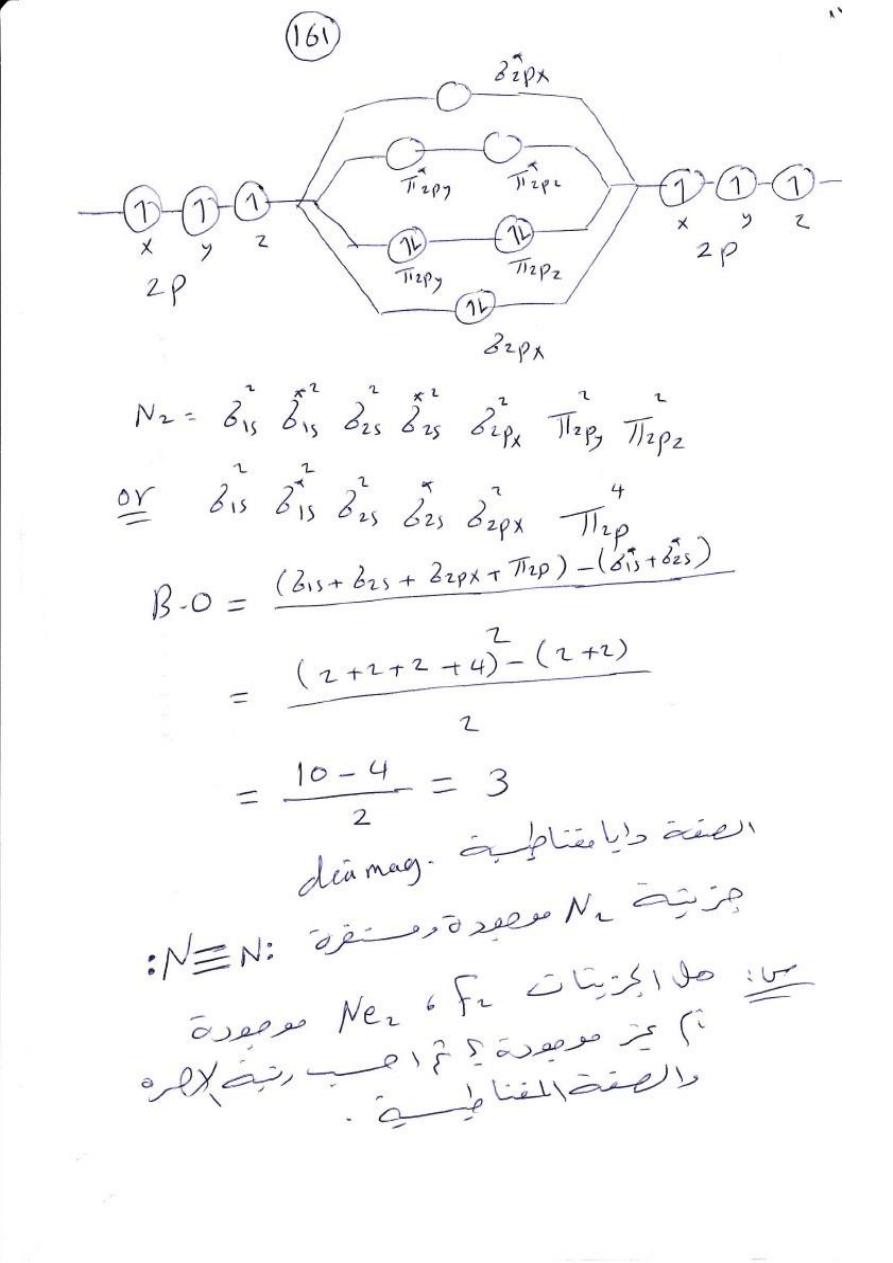 161
σ*2px
π*2py π*2pz
1 1 1 1 1 1
x y z x y z
2p 2p
1L 1L
π2py π2pz
1L
σ2px
N2 = σ1s² σ*1s² σ2s² σ*2s² σ2px² π2py² π2pz²
or σ1s² σ*1s² σ2s² σ*2s σ2px² π2p⁴
B.O = (σ1s + σ2s + σ2px + π2p) – (σ*1s + σ*2s)
2
= (2+2+2+4) – (2+2)
2
= 10 – 4 = 3
2
الصفة دايا مقناطيسية diamag.
جزيئة N2 موجودة ومستقرة :N≡N:
س: هل الجزيئات F2 ، Ne2 موجودة
ام غير موجودة ؟ ثم احسب رتبة الاصره
والصفة المغناطيسية .